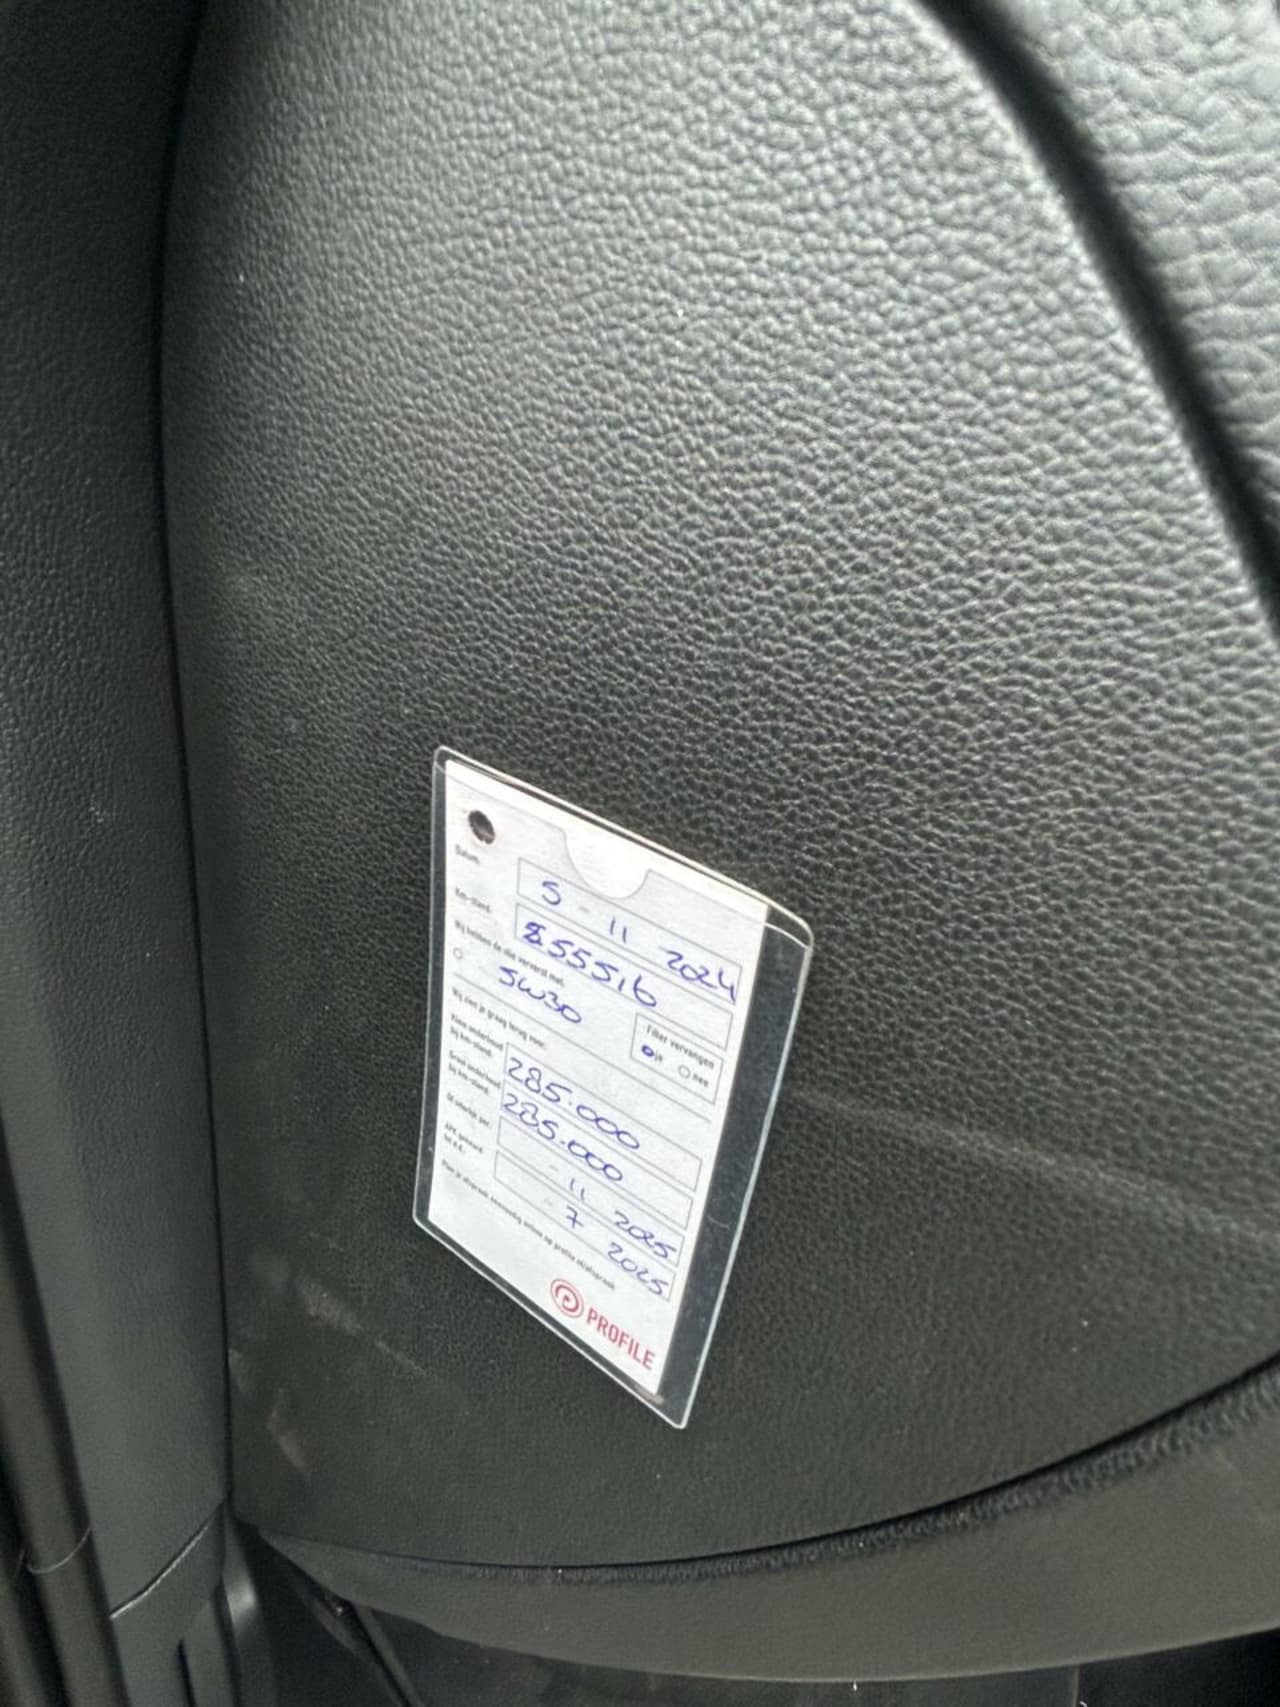 Datum: 5 - 11 2024
Km-stand:
Wij hebben de olie ververst met:
5W30
Filter vervangen
ja nee
Wij zien je graag terug voor:
Klein onderhoud bij km-stand: 285.000
Groot onderhoud bij km-stand: 285.000
Of uiterlijk per: - 11 2025
APK gekeurd tot d.d.: - 7 2025
Plan je afspraak eenvoudig online op profile.nl/afspraak
PROFILE